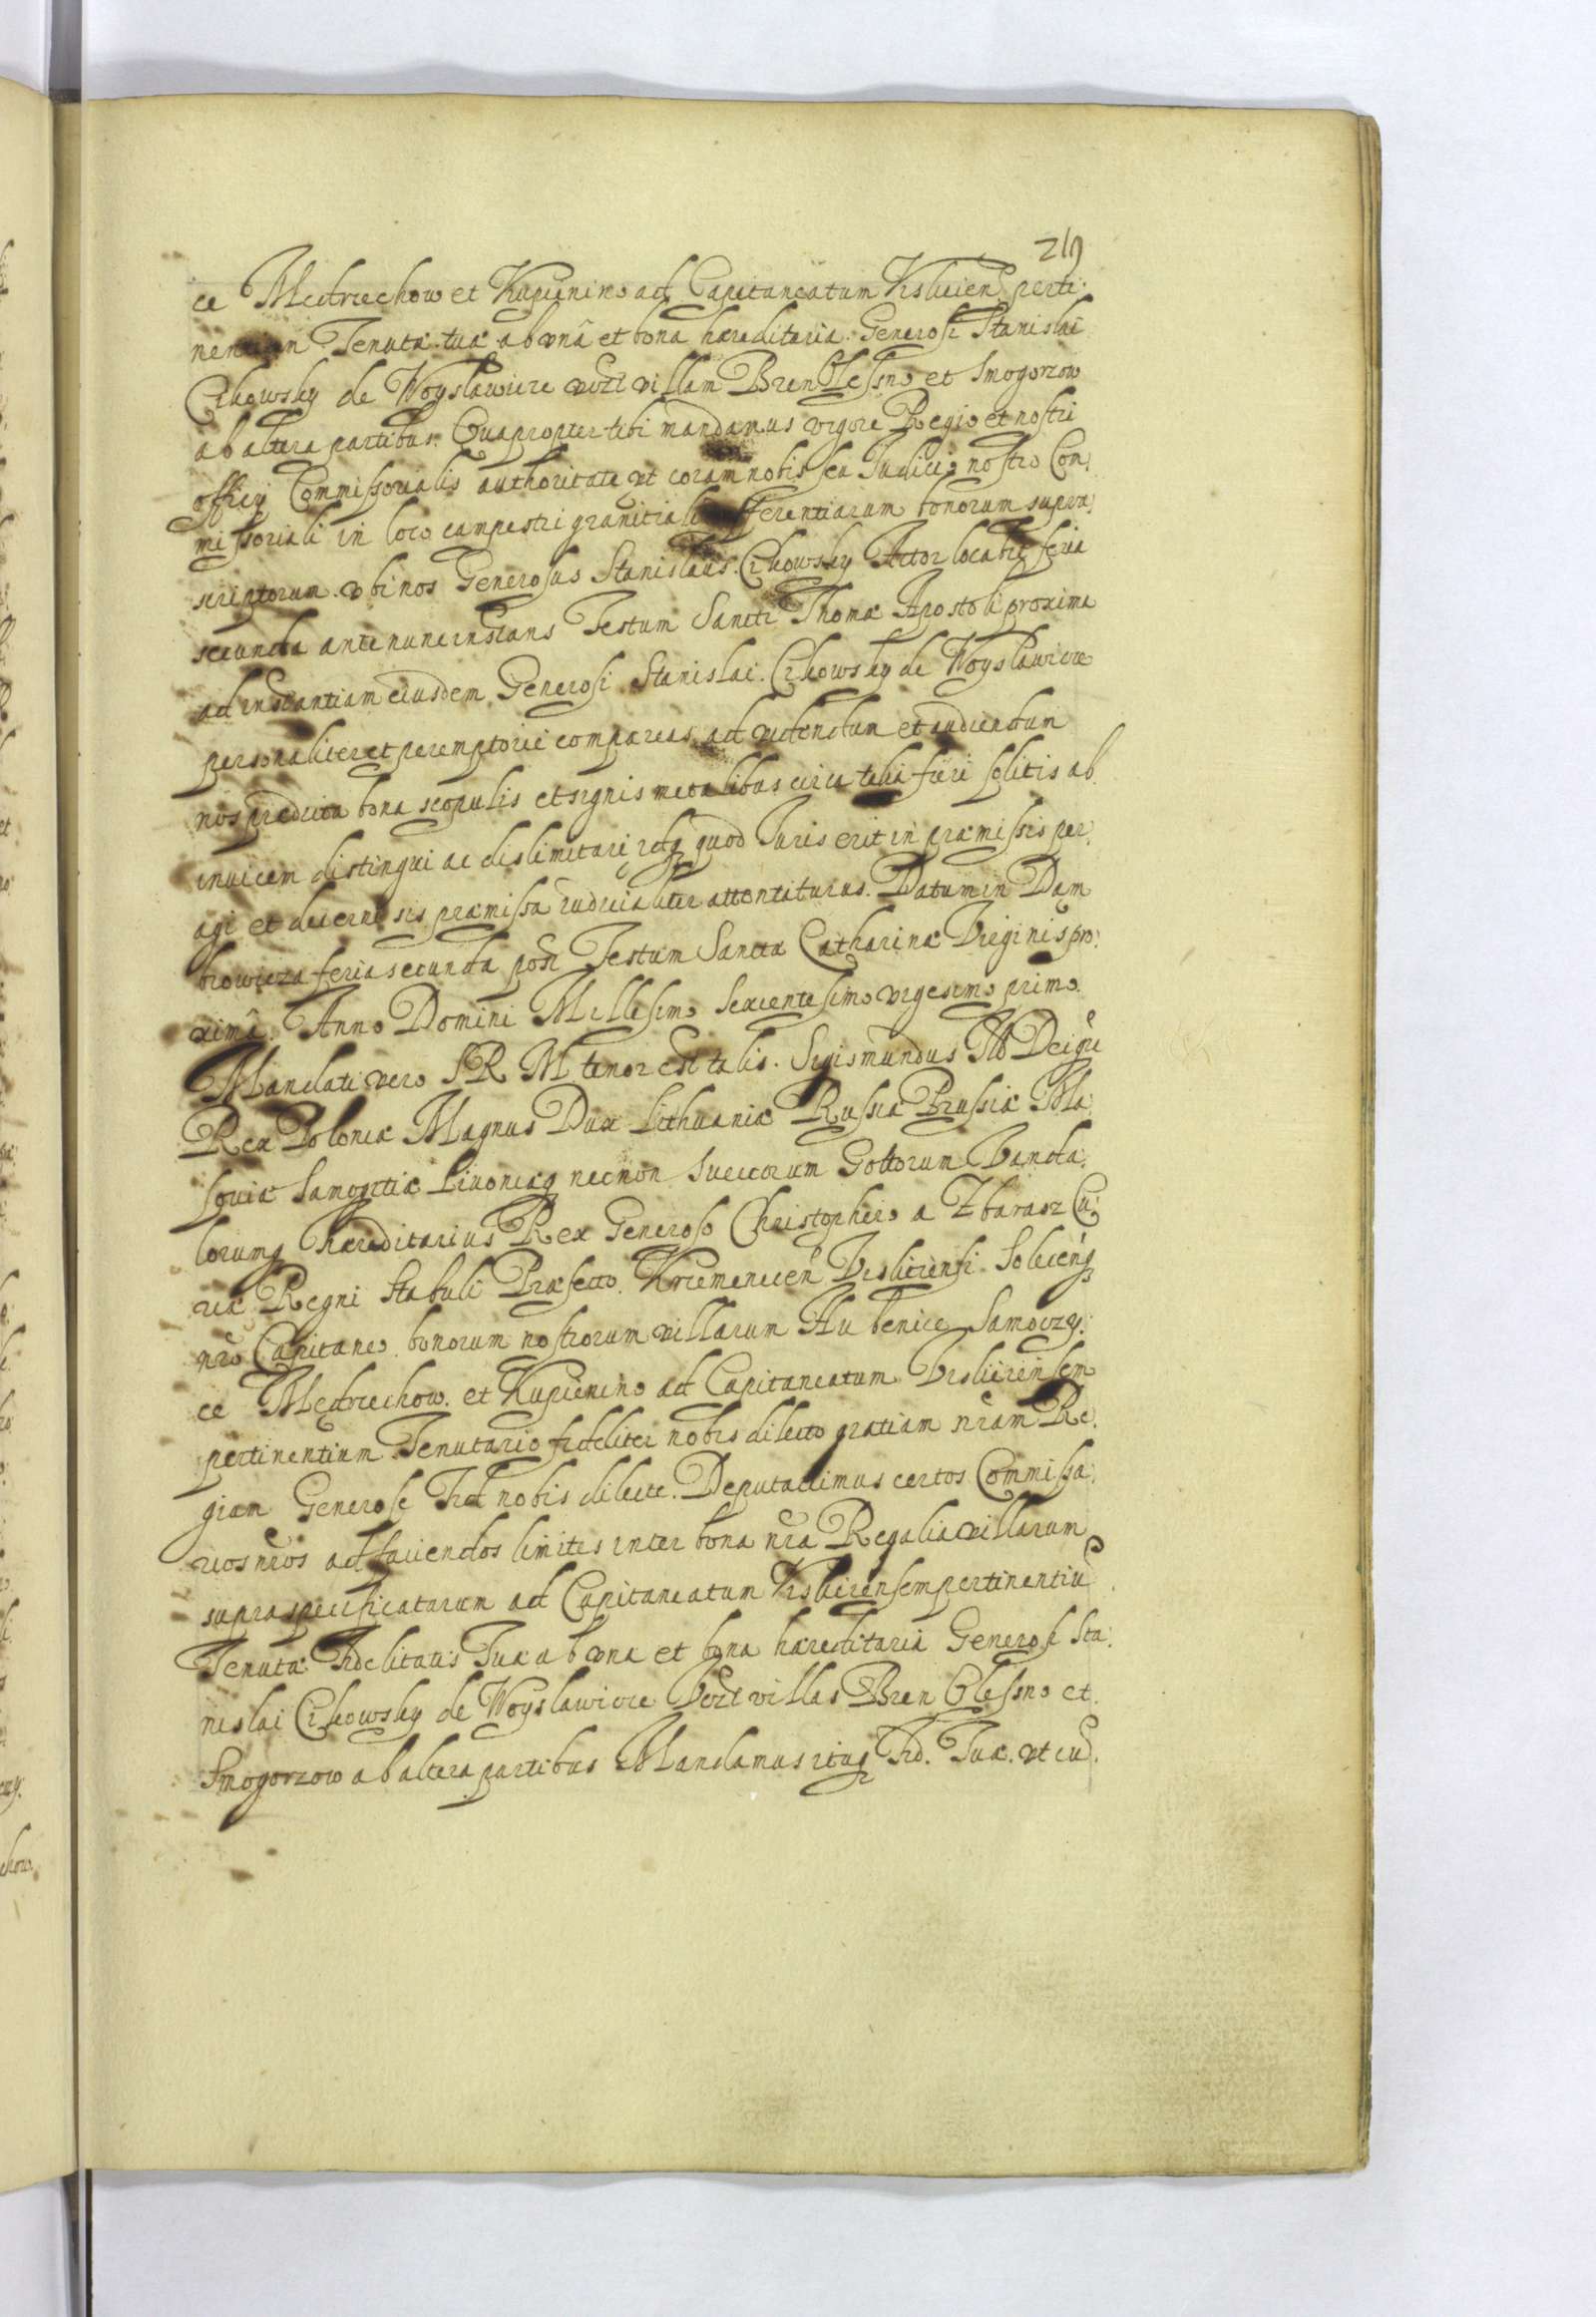 219
ce Medrzechow et Kupienino ad Capitaneatum Visliciēn perti:
nentium Tenutæ tuæ ab unâ et bona hæreditaria Generosi Stanislai
Cikowsky de Woyslawice vi͠dzl villam Bren Olessno et Smogorzow
ab altera partibus. Quapropter tibi mandamus vigore Regio et nostri
officij Commissorialis authoritate ut coram nobis seu Iudicio nostro Com:
missoriali in loco campestri granitiali differentiarum bonorum supra:
scriptorum. ubi nos Generosus Stanislaus Cikowsky Actor locabit feria
secunda ante nunc instans Festum Sancti Thomæ Apostoli proxima
ad instantiam eiusdem Generosi Stanislai Cikowsky de Woyslawice
personaliter et peremptorie compareas ad videndum et audiendum
nos prædicta bona scopulis et signis metalibus circa talia fieri solitis ab
invicem distingui ac dislimitari idq quod Iuris erit in præmissis per:
agi et decerni sis præmissa iudicialiter attentaturus. Datum in Dąm
browicza feria secunda post Festum Sanctæ Catharinæ Virginis pro:
ximâ. Anno Domini Millesimo Sexcentesimo vigesimo primo.
Mandati vero S R M tenor est talis. Sigismundus III Dei grã
Rex Poloniæ Magnus Dux Lithuaniæ Russiæ Prussiæ Ma
souiæ Samogitiæ Liuoniæq necnon Suecorum Gottorum Vanda:
lorumq hæreditarius Rex Generoso Christophero a Zbarasz Cu:
riæ Regni Stabuli Præfecto. Krzemenecēn Visliciensi Soleceñq
nrō Capitaneo bonorum nostrorum villarum Hubenice Samoczy:
ce Mędrzechow et Kupienino ad Capitaneatum Visliciensem
pertinentium Tenutario fideliter nobis dilecto gratiam nrām Re:
giam Generose Fid nobis dilecte. Deputauimus certos Commissa:
rios nrōs ad faciendos limites inter bona nrā Regalia villarum
supra specificatarum ad Capitaneatum Visliciensem pertinentiū
Tenutæ Fidelitatis Tuæ ab una et bona hæreditaria Generosi Sta:
nislai Cikowsky de Woyslawice vi͠dzl villas Bren Olessno et
Smogorzow ab altera partibus Mandamus itaq Fid. Tuæ. ut cū